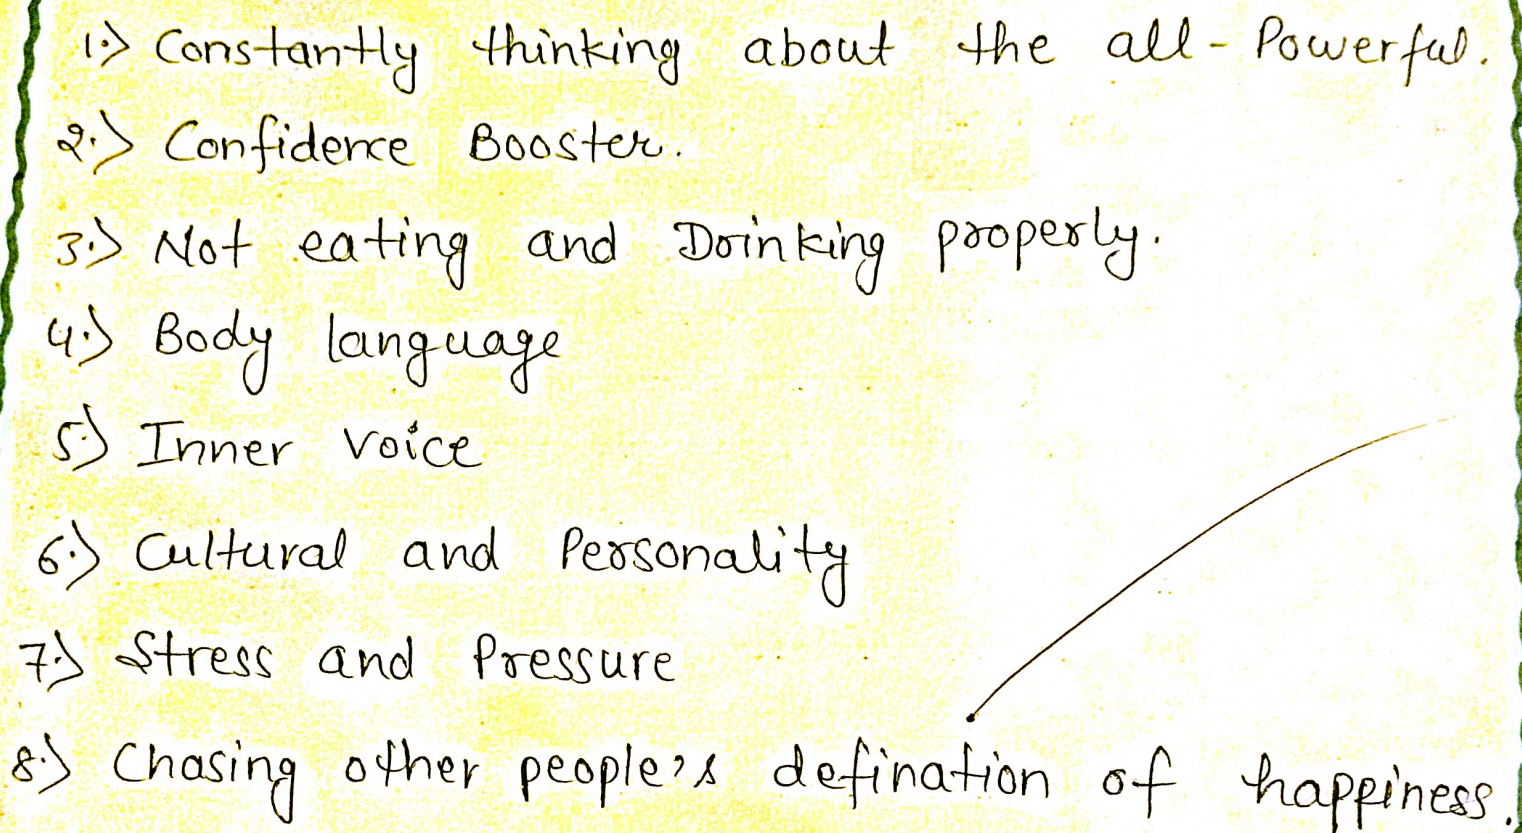 1.) Constantly thinking about the all-Powerful.
2.) Confidence Booster.
3.) Not eating and Drinking properly.
4.) Body language
5.) Inner voice
6.) Cultural and Personality
7.) Stress and Pressure
8.) Chasing other people's defination of happiness.